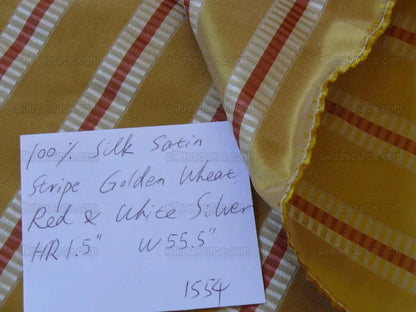 100% Silk Satin
Stripe Golden Wheat
Red & White Silver
HR 1.5" W 55.5"
1554
silkresource.com